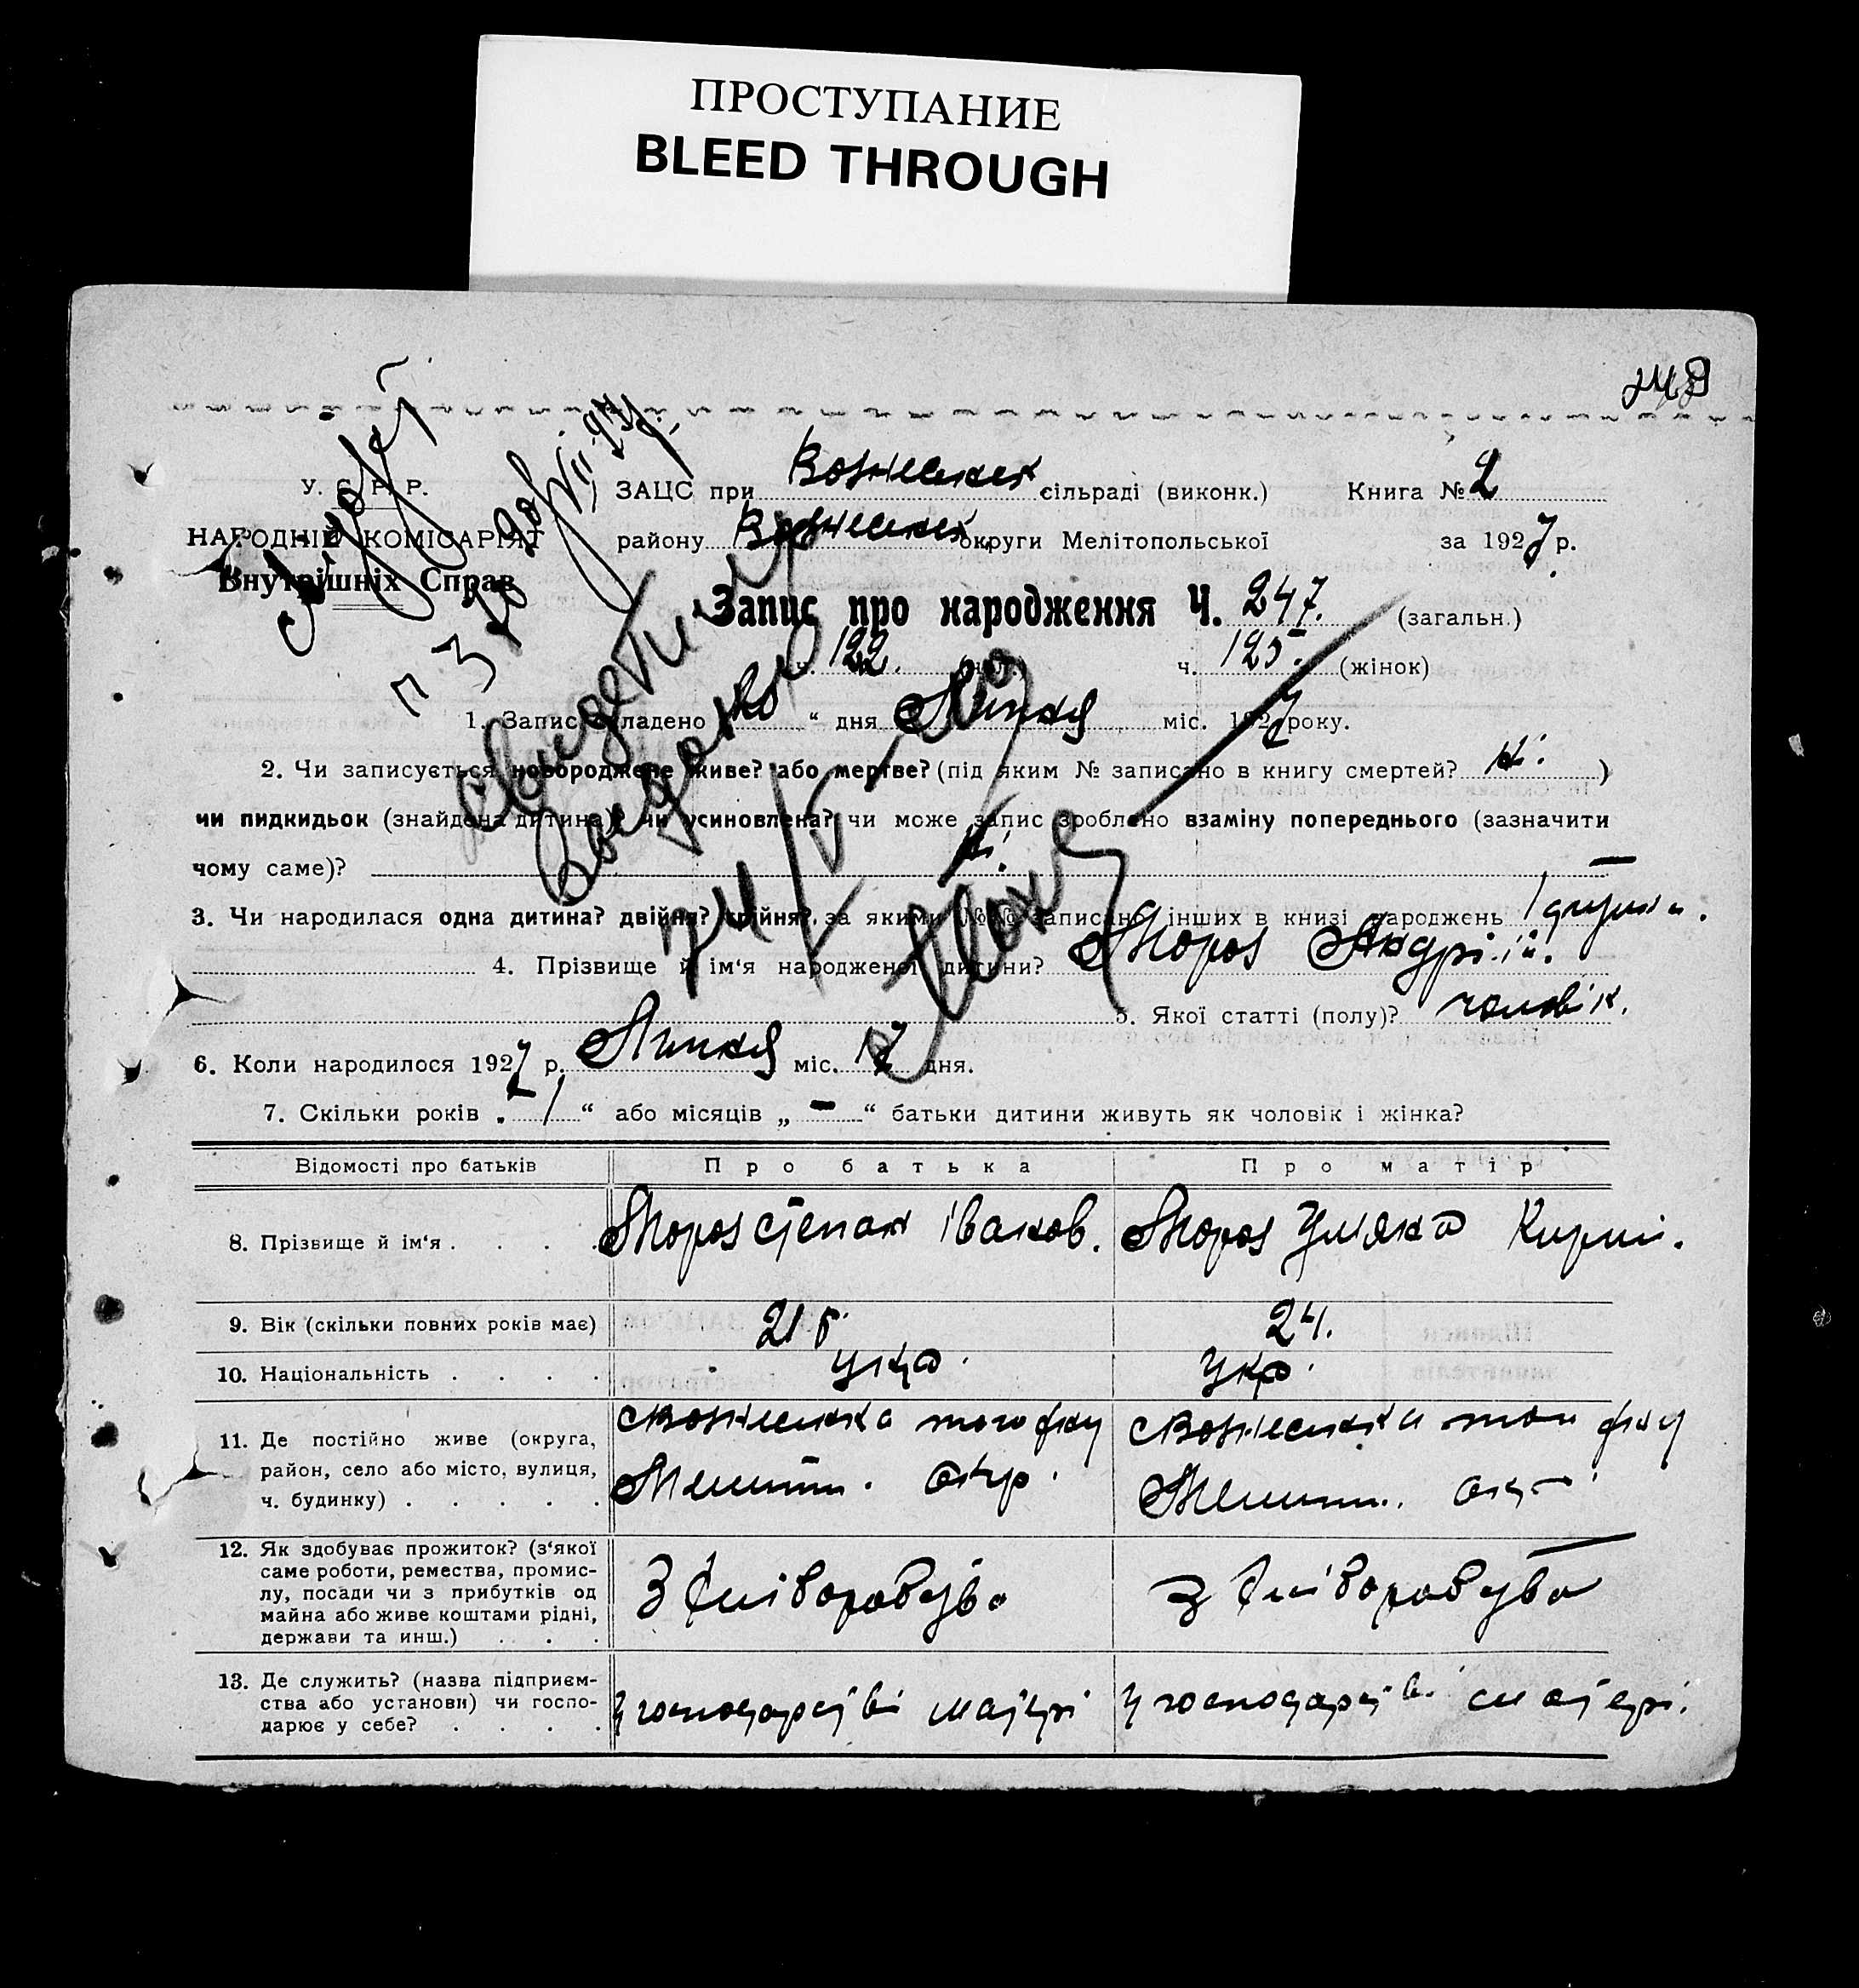 ПРОСТУПАНИЕ
BLEED THROUGH
248
У. С. Р. Р.
НАРОДНІЙ КОМІСАРІЯТ
Внутрішніх Справ
ЗАЦС при Вознесенск сільраді (виконк.) Книга № 2
району Вознесенск округи Мелітопольської за 1927 р.
Запис про народження Ч. 247. (загальн.)
ч. 122. (чол.) ч. 125. (жінок)
1. Запис складено „20“ дня Липня міс. 1927 року.
2. Чи записується новороджене живе? або мертве? (під яким № записано в книгу смертей? )
чи пидкидьок (знайдена дитина)? чи усиновлена? чи може запис зроблено взаміну попереднього (зазначити
чому саме)?
3. Чи народилася одна дитина? двійня? трійня? за якими №№ записано інших в книзі народжень 1
4. Прізвище й ім‘я народженої дитини? Мороз Андрій.
5. Якої статті (полу)? чоловік.
6. Коли народилося 1927 р. Липня міс. 17 дня.
7. Скільки років „ 1 “ або місяців „ – “ батьки дитини живуть як чоловік і жінка?
Відомості про батьків Про батька Про матір
8. Прізвище й ім‘я . . . . Мороз Степан Іванов. Мороз Уляна Кирил.
9. Вік (скільки повних років має) 21 р. 24.
10. Національність . . . . укр. укр.
11. Де постійно живе (округа,
район, село або місто, вулиця,
ч. будинку) . . . . .
Вознесенка того р-ну
Меліт. окр.
Вознесенка того р-ну
Меліт. окр.
12. Як здобуває прожиток? (з‘якої
саме роботи, ремества, промис-
лу, посади чи з прибутків од
майна або живе коштами рідні,
держави та инш.) . . .
З хліборобства
З хліборобства
13. Де служить? (назва підприєм-
ства або установи) чи госпо-
дарює у себе? . . . .
У господарстві матері
У господарстві матері.